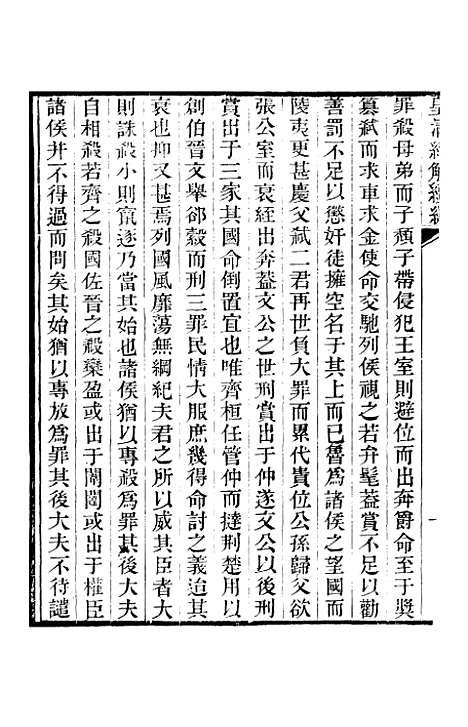 皇清經解經編
罪殺母弟而子頹子帶侵犯王室則避位而出奔爵命至于獎
簒弑而求車求金使命交馳列侯視之若弁髦蓋賞不足以勸
善罰不足以懲奸徒擁空名于其上而已魯爲諸侯之望國而
陵夷更甚慶父弑二君再世負大罪而累代貴位公孫歸父欲
張公室而衰絰出奔蓋文公之世刑賞出于仲遂文公以後刑
賞出于三家其國命倒置宜也唯齊桓任管仲而撻荆楚用以
創伯晉文舉郤縠而刑三罪民情大服庶幾得命討之義迨其
衰也抑又甚焉列國風靡蕩無綱紀夫君之所以威其臣者大
則誅殺小則竄逐乃當其始也諸侯猶以專殺爲罪其後大夫
自相殺若齊之殺國佐晉之殺欒盈或出于閨闥或出于權臣
諸侯并不得過而問矣其始猶以專放爲罪其後大夫不待譴